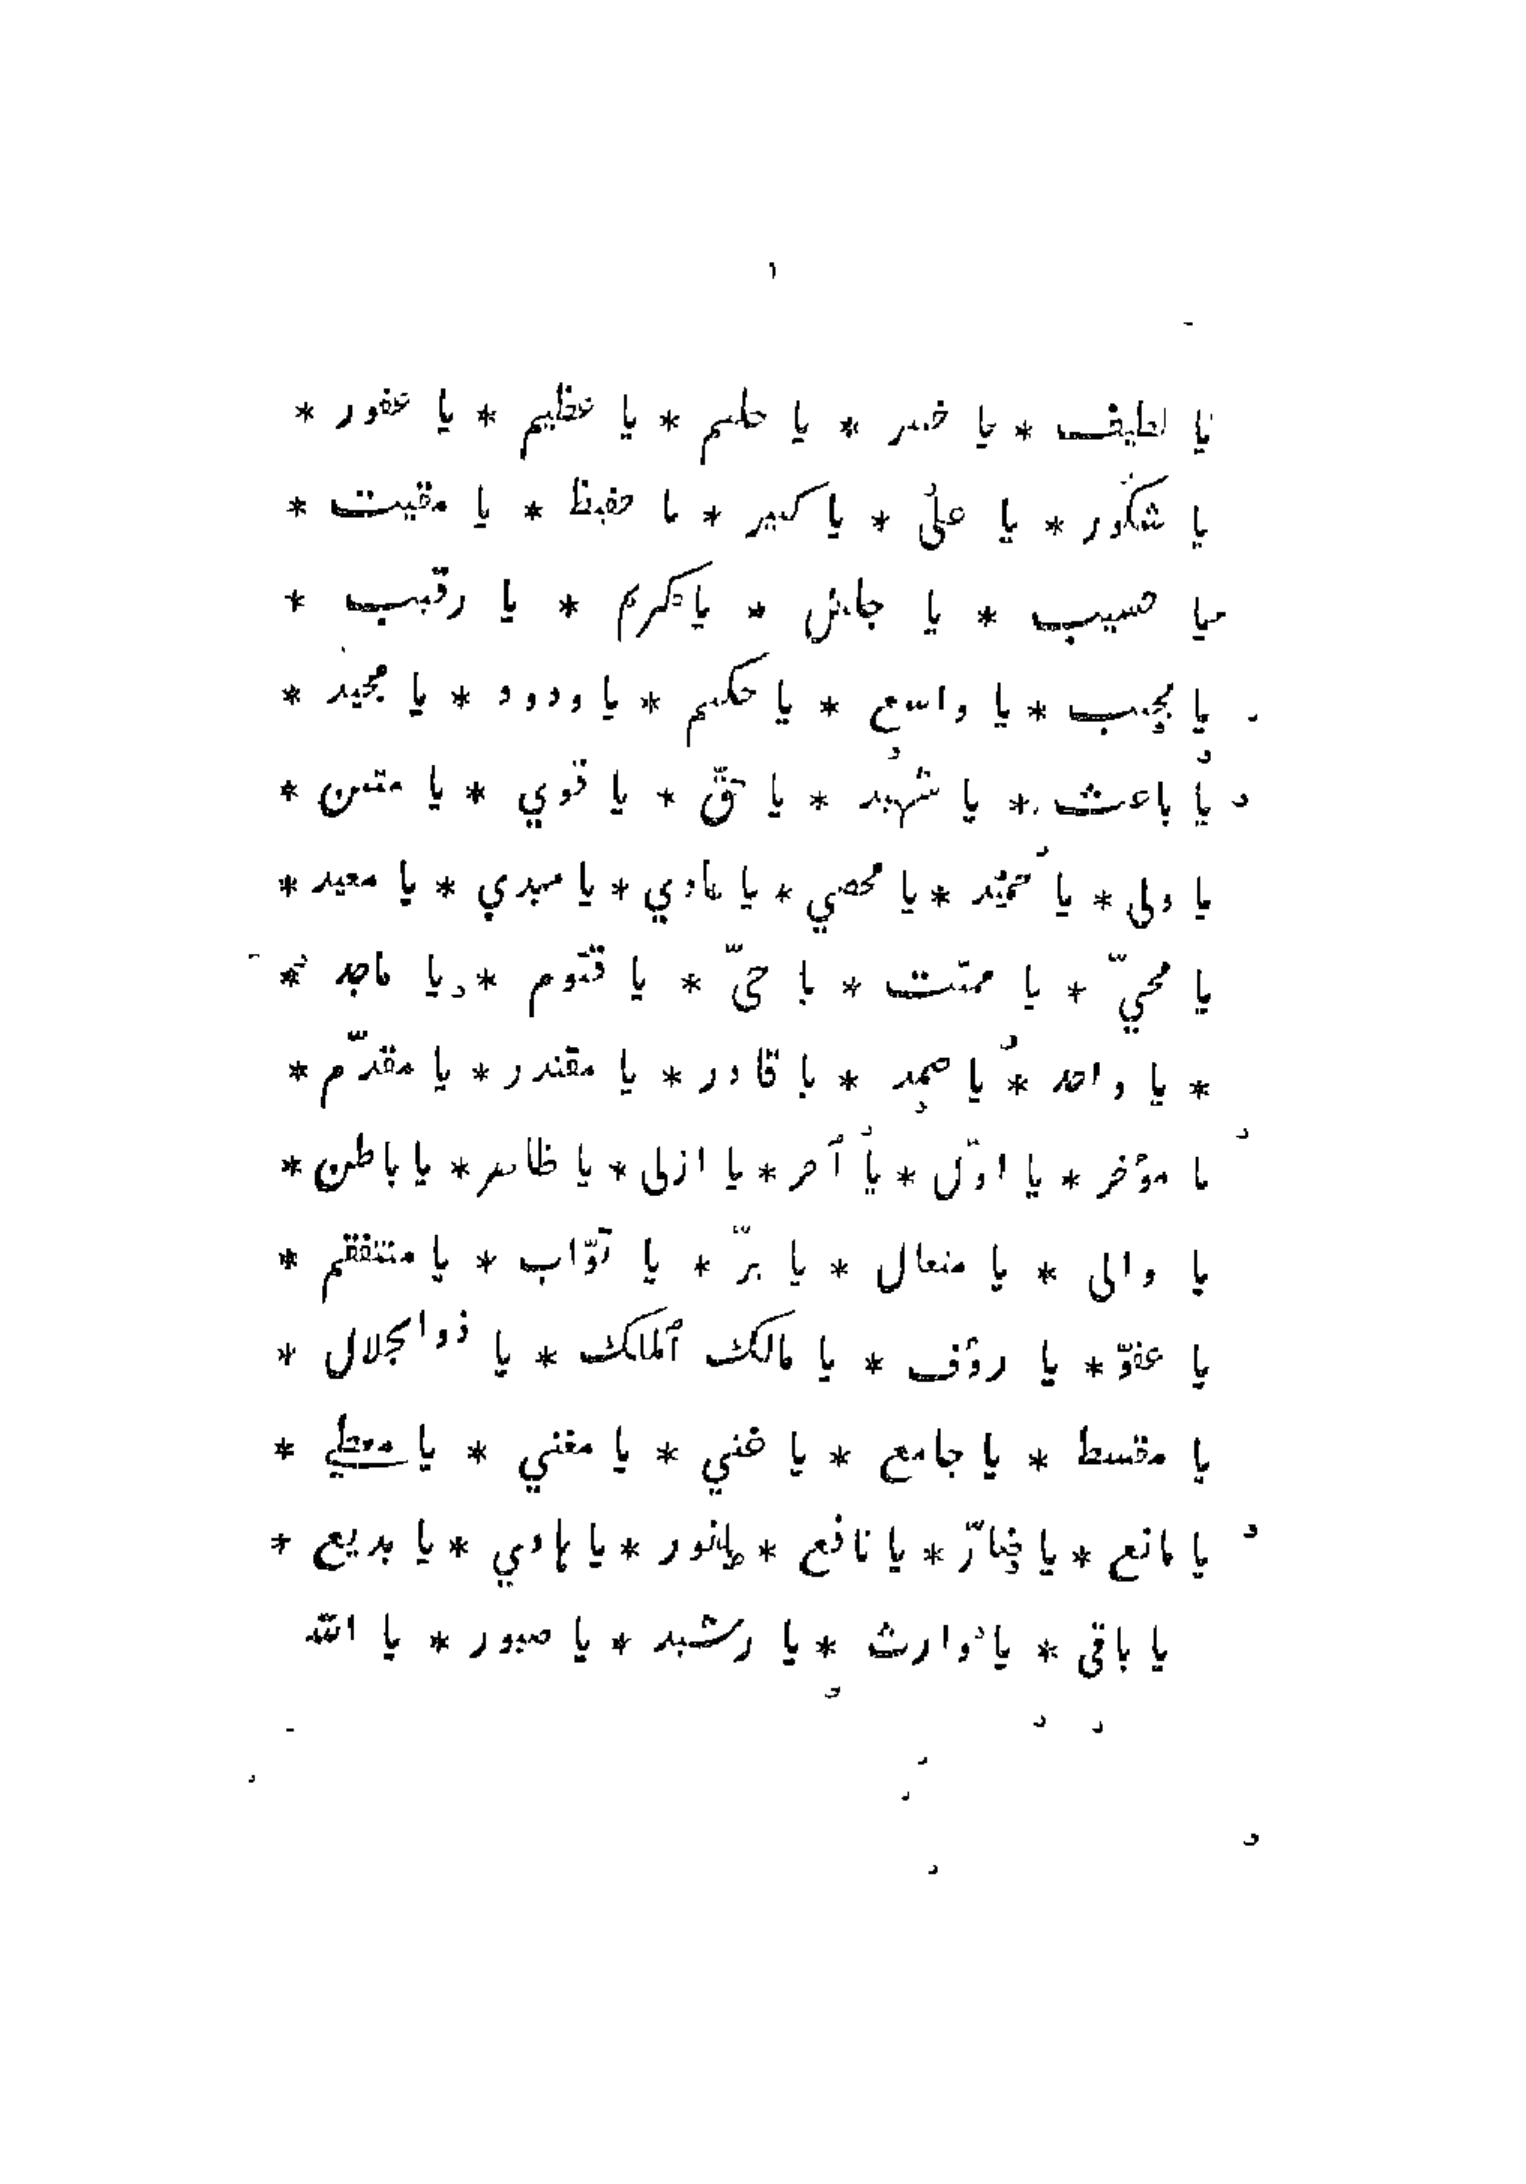 ١
يا لطيف * يا خبير * يا حليم * يا عظيم * يا غفور *
يا شكور * يا علىّ * يا كبير * يا حفيظ * يا مقيت *
يا حسيب * يا * يا كريم * يا رقيب *
يا مجيب * يا واسع * يا حكيم * يا ودود * يا مجيد *
يا باعث * يا شهيد * يا حقّ * يا قوي * يا متين *
يا ولى * يا حميد * يا محصي * يا هادي * يا مبدي * يا معيد *
يا محييّ * يا مميّت * يا حىّ * يا قيّوم * يا ماجد *
* يا واحد * يا صمد * يا قادر * يا مقتدر * يا مقدّم *
يا مؤخر * يا اوّل * يا آخر * يا ازلى * يا ظاهر * يا باطن *
يا والى * يا متعال * يا برّ * يا توّاب * يا منتقم *
يا عفوّ * يا رؤف * يا مالك الملك * يا ذوا لجلال *
يا مقسط * يا جامع * يا غني * يا مغني * يا معطي *
يا مانع * يا ضارّ * يا نافع * يا نور * يا هادي * يا بديع *
يا باقى * يا وارث * يا رشيد * يا صبور * يا الله